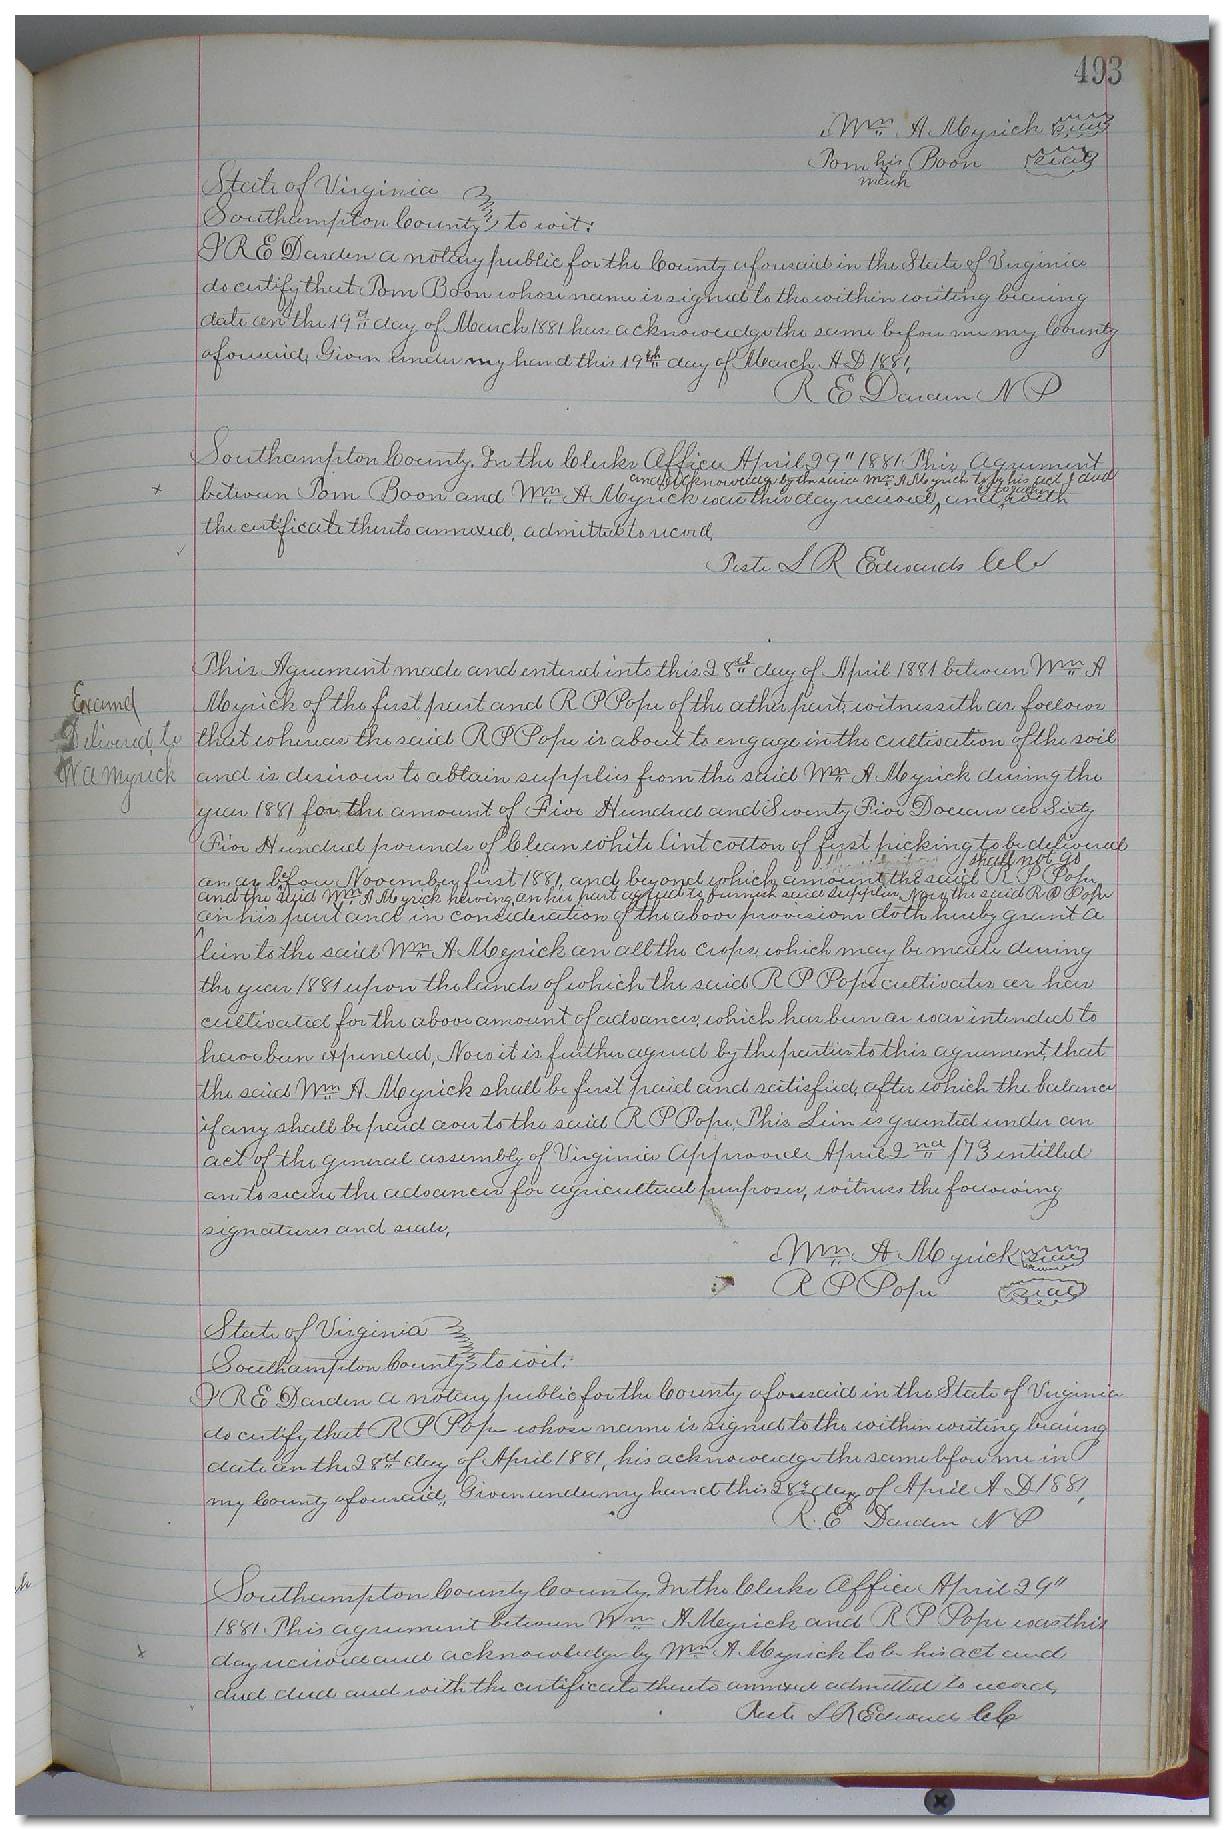 493
Wm A Myrick Seal
Tom his Boon Seal
mark
State of Virginia
Southampton County to wit:
I R E Darden a notary public for the County aforesaid in the State of Virginia
do certify that Tom Boon whose name is signed to the within writing bearing
date on the 19th day of March 1881 has acknowledge the same before me my County
aforesaid, Given under my hand this 19th day of March A D 1881,
R E Darden N P
Southampton County. In the Clerks Office April 29" 1881 This Agreement
and acknowledge by the said Wm A Myrick to be his act & deed
between Tom Boon and Wm A Myrick was this day received, and, together with
the certificate thereto annexed, admitted to record,
Teste L R Edwards CC
This Agreement made and entered into this 28th day of April 1881 between Wm A
Examd
Myrick of the first part and R P Pope of the other part, witnesseth as follows
Delivered to
that whereas the said R P Pope is about to engage in the cultivation of the soil
W A Myrick
and is desirous to obtain supplies from the said Wm A Myrick during the
year 1881 for the amount of Five Hundred and Seventy Five Dollars or Sixty
Five Hundred pounds of Clean white lint cotton of first picking to be delivered
shall not go
on or before November first 1881, and beyond which amount the said R P Pope
and the said Wm A Myrick having on his part agreed to furnish said supplies, Now, the said R P Pope
on his part and in consideration of the above provisions doth hereby grant a
lien to the said Wm A Myrick on all the crops, which may be made during
the year 1881 upon the lands of which the said R P Pope cultivates or has
cultivated for the above amount of advances, which has been or was intended to
have been expended, Now it is further agreed by the parties to this agreement, that
the said Wm A Myrick shall be first paid and satisfied, after which the balance
if any shall be paid over to the said R P Pope, This Lien is granted under an
act of the general assembly of Virginia Approved April 2nd /73 entitled
an to secure the advances for agricultural purposes, witness the following
signatures and seals,
Wm A Myrick Seal
R P Pope Seal
State of Virginia
Southampton County to wit:
I R E Darden a notary public for the County aforesaid in the State of Virginia
do certify that R P Pope whose name is signed to the within writing bearing
date on the 28th day of April 1881, his acknowledge the same before me in
my County aforesaid, Given under my hand this 28th day of April A D 1881,
R. E Darden N P
Southampton County County, In the Clerks Office April 29"
1881. This agreement between Wm A Myrick and R P Pope was this
day received and acknowledge by Wm A Myrick to be his act and
deed and with the certificate thereto annexed admitted to record,
Teste L R Edwards CC